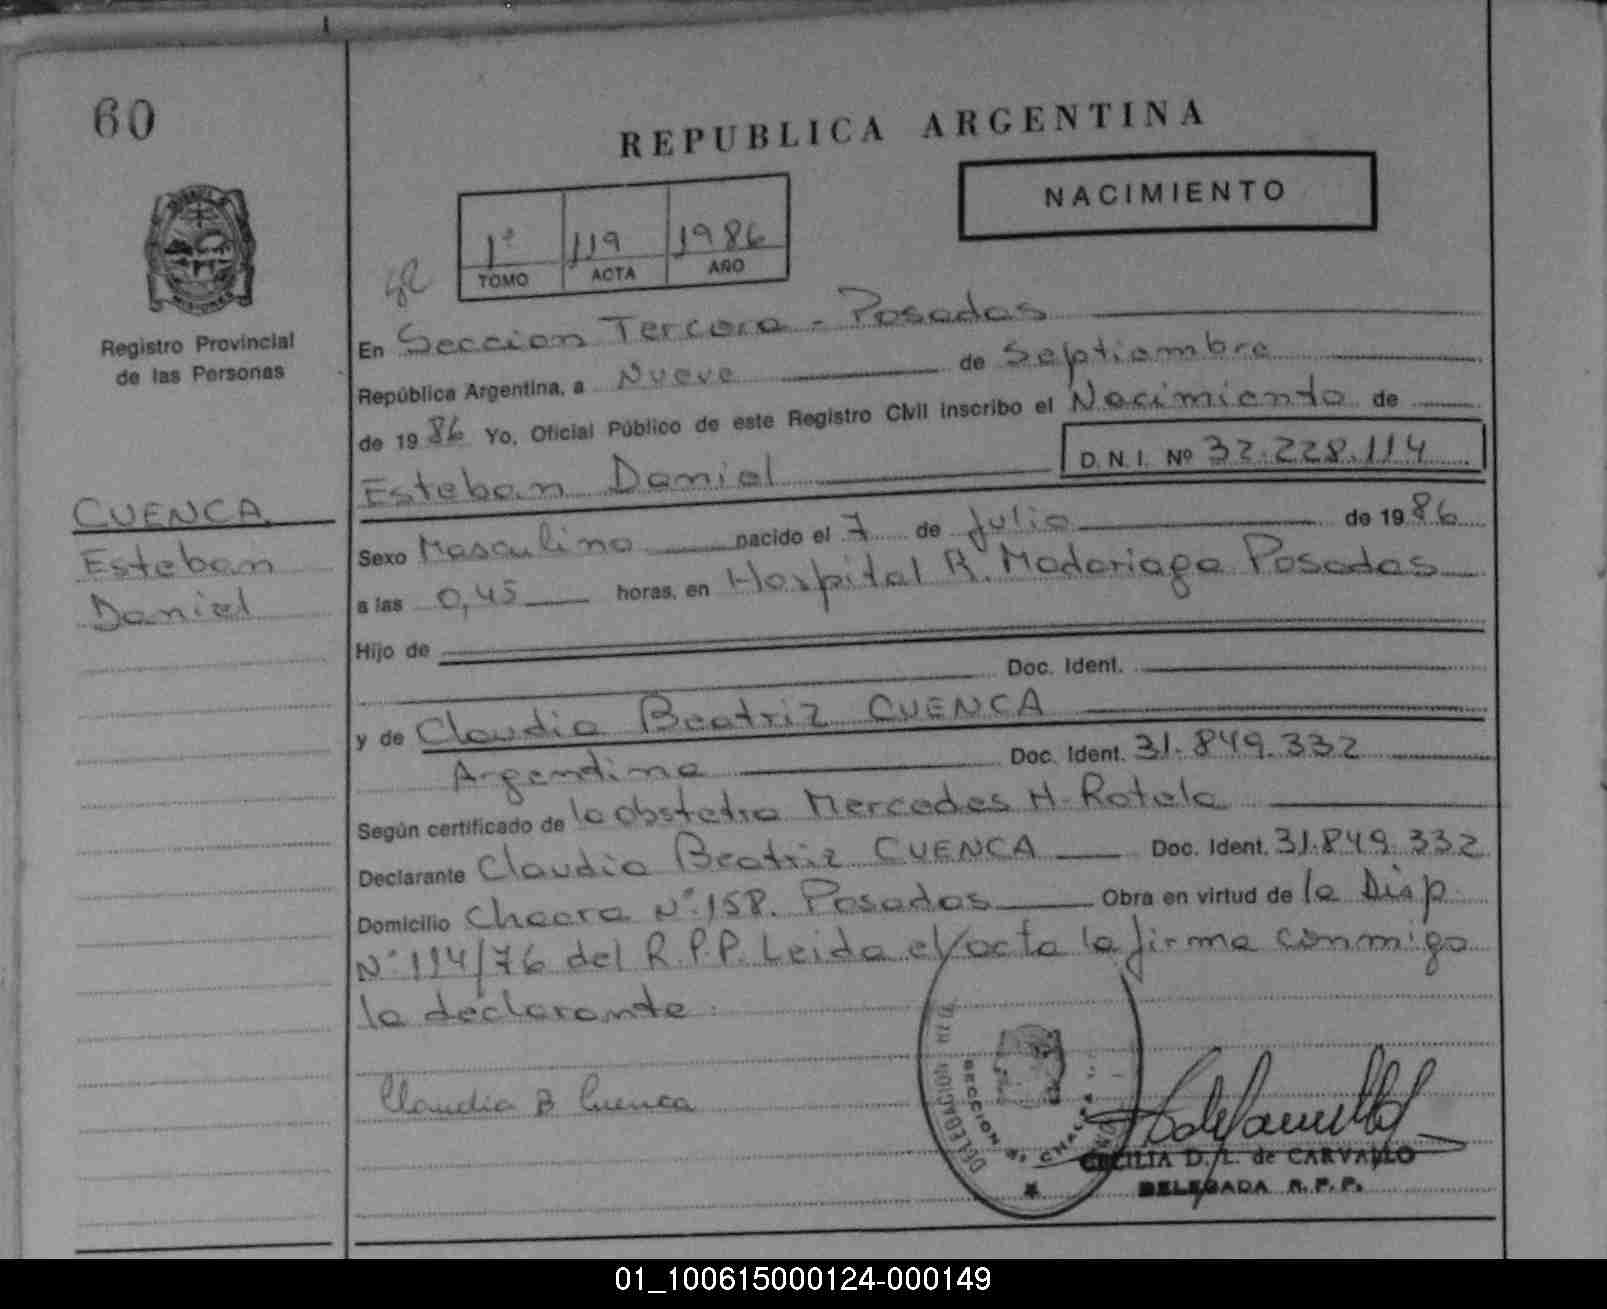 60
REPUBLICA ARGENTINA
NACIMIENTO
1º 119 1986
TOMO ACTA AÑO
Registro Provincial
de las Personas
CUENCA
Esteban
Daniel
En Seccion Tercera - Posadas
República Argentina, a Nueve de Septiembre
de 1986 Yo, Oficial Público de este Registro Civil inscribo el Nacimiento de
Esteban Daniel D. N. I. Nº 32.228.114
Sexo Masculino nacido el 7 de Julio de 1986
a las 0,45 horas, en Hospital R. Madariaga Posadas
Hijo de
Doc. Ident.
y de Claudia Beatriz CUENCA
Argentina Doc. Ident. 31.849.332
Según certificado de la obstetra Mercedes H. Rotela
Declarante Claudia Beatriz CUENCA Doc. Ident. 31.849.332
Domicilio Chacra Nº 158. Posadas Obra en virtud de la Disp.
Nº 114/76 del R.P.P. Leida el acta la firma conmigo
la declarante.
Claudia B Cuenca
DELEGACION
SECCION
CECILIA D. L. de CARVALLO
DELEGADA R.P.P.
01_100615000124-000149